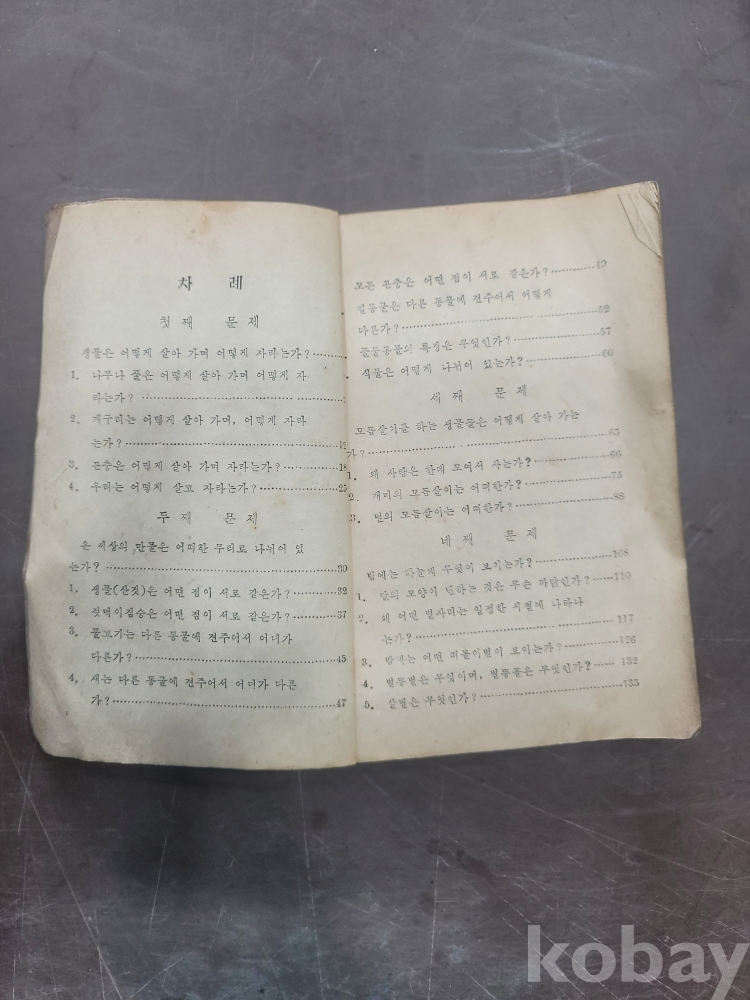 차 례
첫 째 문 제
생물은 어떻게 살아 가며 어떻게 자라는가?
1. 나무나 풀은 어떻게 살아 가며 어떻게 자
라는가?
2. 개구리는 어떻게 살아 가며, 어떻게 자라
는가? 12
3. 곤충은 어떻게 살아 가며 자라는가? 18
4. 우리는 어떻게 살고 자라는가? 25
두 째 문 제
온 세상의 만물은 어떠한 무리로 나뉘어 있
는가? 30
1. 생물(산것)은 어떤 점이 서로 같은가? 32
2. 젖먹이짐승은 어떤 점이 서로 같은가? 37
3. 물고기는 다른 동물에 견주어서 어디가
다른가? 45
4. 새는 다른 동물에 견주어서 어디가 다른
가? 47
모든 곤충은 어떤 점이 서로 같은가? 49
길동물은 다른 동물에 견주어서 어떻게
다른가? 52
물뭍동물의 특징은 무엇인가? 57
식물은 어떻게 나뉘어 있는가? 60
세 째 문 제
모듬살이를 하는 생물들은 어떻게 살아 가는
가? 65
1. 왜 사람은 한데 모여서 사는가? 66
2. 개미의 모듬살이는 어떠한가? 75
3. 벌의 모듬살이는 어떠한가? 88
네 째 문 제
밤에는 하늘에 무엇이 보이는가? 108
1. 달의 모양이 변하는 것은 무슨 까닭인가? 110
2. 왜 어떤 별자리는 일정한 시절에 나타나
는가? 117
3. 밤에는 어떤 떠돌이별이 보이는가? 126
4. 별똥별은 무엇이며, 별똥돌은 무엇인가? 132
5. 살별은 무엇인가? 135
kobay